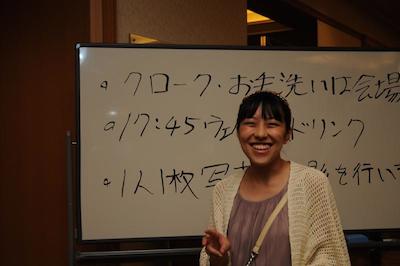 クローク・お手洗いは会場
17:45ウェ ドリンク
1人1枚写 を行い